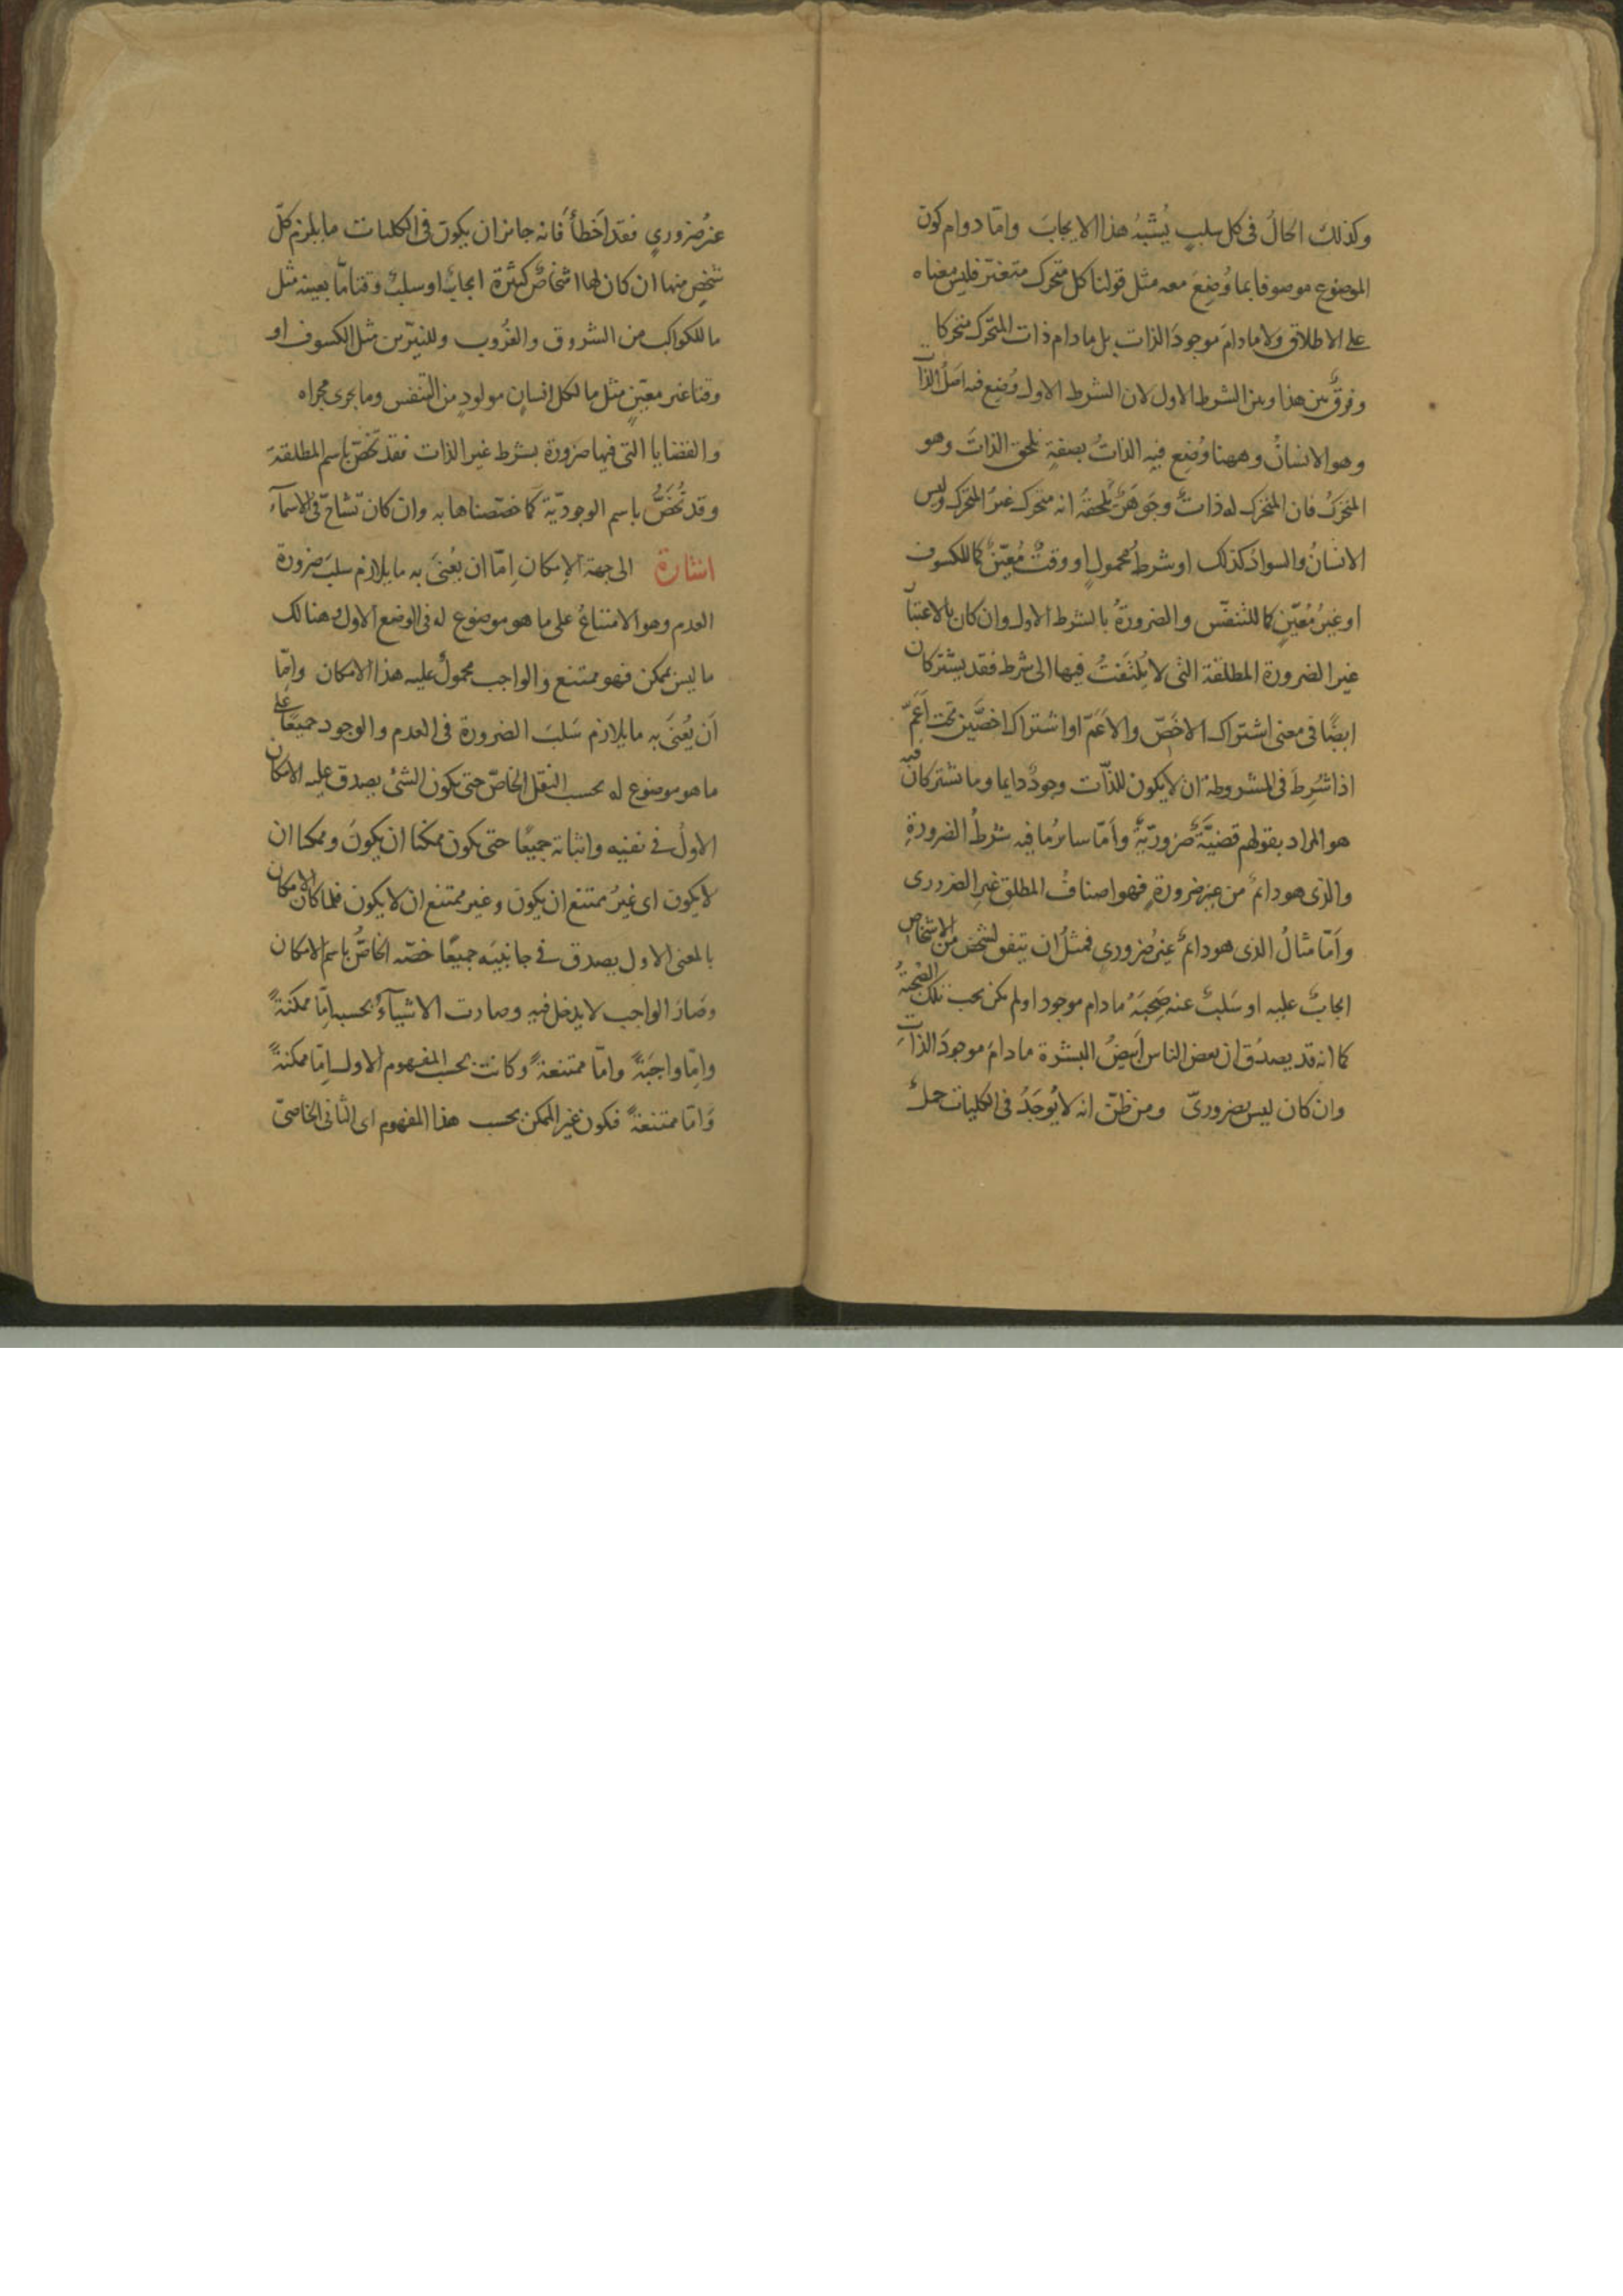 وكذلك الحالُ فى كل سلبٍ يُشبهُ هذا الايجابَ وامّا دوام كون
الموضوع موصوفا بما وُضِعَ معه مثل قولنا كل متحرك متغيّر فليس معناه
على الاطلاق ولا مادامَ موجودَ الذات بل مادام ذات المتحرك متحركا
وفرقٌ بين هذا وبين الشرط الاول لان الشرط الاول وُضِع فيه اصلُ الذات
وهو الانسانُ وههنا وُضِع فيه الذاتُ بصفةٍ تلحق الذاتَ وهو
المتحركُ فان المتحرك له ذاتٌ وجوهرٌ يلحقهُ انه متحرك غيرُ المتحرك وليس
الانسانُ والسوادُ كذلك او شرطُ محمولٍ او وقتٌ مُعيّنٌ كما للكسوف
او غيرُ مُعَيّنٍ كما للتنفّس والضرورةُ بالشرط الاول وان كان بالاعتبار
غير الضرورة المطلقة التى لا يُلتَفتُ فيها الى شرط فقد يشتركان
ايضًا فى معنى اشتراك الاخَصّ والاَعَمّ او اشتراك اخصَّين تحت اَعَمّ
اذا شُرِطَ فى المشروطة ان لا يكون للذّات وجودٌ دايما وما تشتركان فيه
هو المراد بقولهم قضيّةٌ ضَروريّةٌ وأمّا سائرُ ما فيه شرطُ الضرورةِ
والذى هو دائمٌ من غير ضرورةٍ فهو اصنافُ المطلق غيرِ الضرورى
وأمّا مثالُ الذى هو دائمٌ غيرُ ضرورى فمثلُ ان يتفق لشخص من الاشخاص
ايجابٌ عليه او سَلبٌ عنه صَحِبَهُ مادام موجودا ولم يكن يجب تلك الصُّحبةُ
كما انه قد يصدُق ان بعض الناس ابيضُ البشرة مادامَ موجودَ الذات
وان كان ليس بضروريّ ومن ظنّ انه لا يُوجَدُ فى الكليات حملٌ
غيرُ ضروريٍ فقد اَخطأ فانه جائز ان يكون فى الكليات ما يلزم كلّ
شخصٍ منها ان كان لها اشخاصٌ كثيرة ايجابٌ او سلبٌ وقتاما بعينه مثل
ما للكواكب من الشروق والغُروب وللنيّرين مثل الكسوف او
وقتا غير معيّنٍ مثل ما لكل انسانٍ مولودٍ من التنفس وما يجرى مجراه
والقضايا التى فيها ضرورة بشرط غير الذات فقد تُخصّ باسم المطلقة
وقد تُخَصُّ باسم الوجوديّة كما خصّصناها به وان كان لا تشاحّ فى الاسمآء
اشارة الى جهة الإمكان اِمّا ان يُعنىَ به ما يلازم سلبَ ضرورة
العدم وهو الامتناعُ على ما هو موضوع له فى الوضع الاول وهنالك
ما ليس بممكن فهو ممتنع والواجب محمولٌ عليه هذا الامكان وامّا
أن يُعنَى به ما يلازم سَلبَ الضرورة فى العدم والوجود جميعًا على
ما هو موضوع له بحسب النقل الخاصّ حتى يكون الشئ يصدق عليه الامكان
الاولُ فى نفيه واثباته جميعًا حتى يكون ممكنا ان يكونَ وممكنا ان
لا يكون اى غيرُ ممتنع ان يكون وغير ممتنع ان لا يكون فلما كان الامكان
بالمعنى الاول يصدق فى جانبَيه جميعًا خصّه الخاصُّ باسم الامكان
وصَارَ الواجب لا يدخل فيه وصارت الاشيآءُ بحسبه اِمّا ممكنةً
وامّا واجبَةً وامّا ممتنعةً وكانت بحسب المفهوم الاول اِمّا ممكنةً
وَامّا ممتنعةً فيكون غير الممكن بحسب هذا المفهوم اى الثانى الخاصىّ